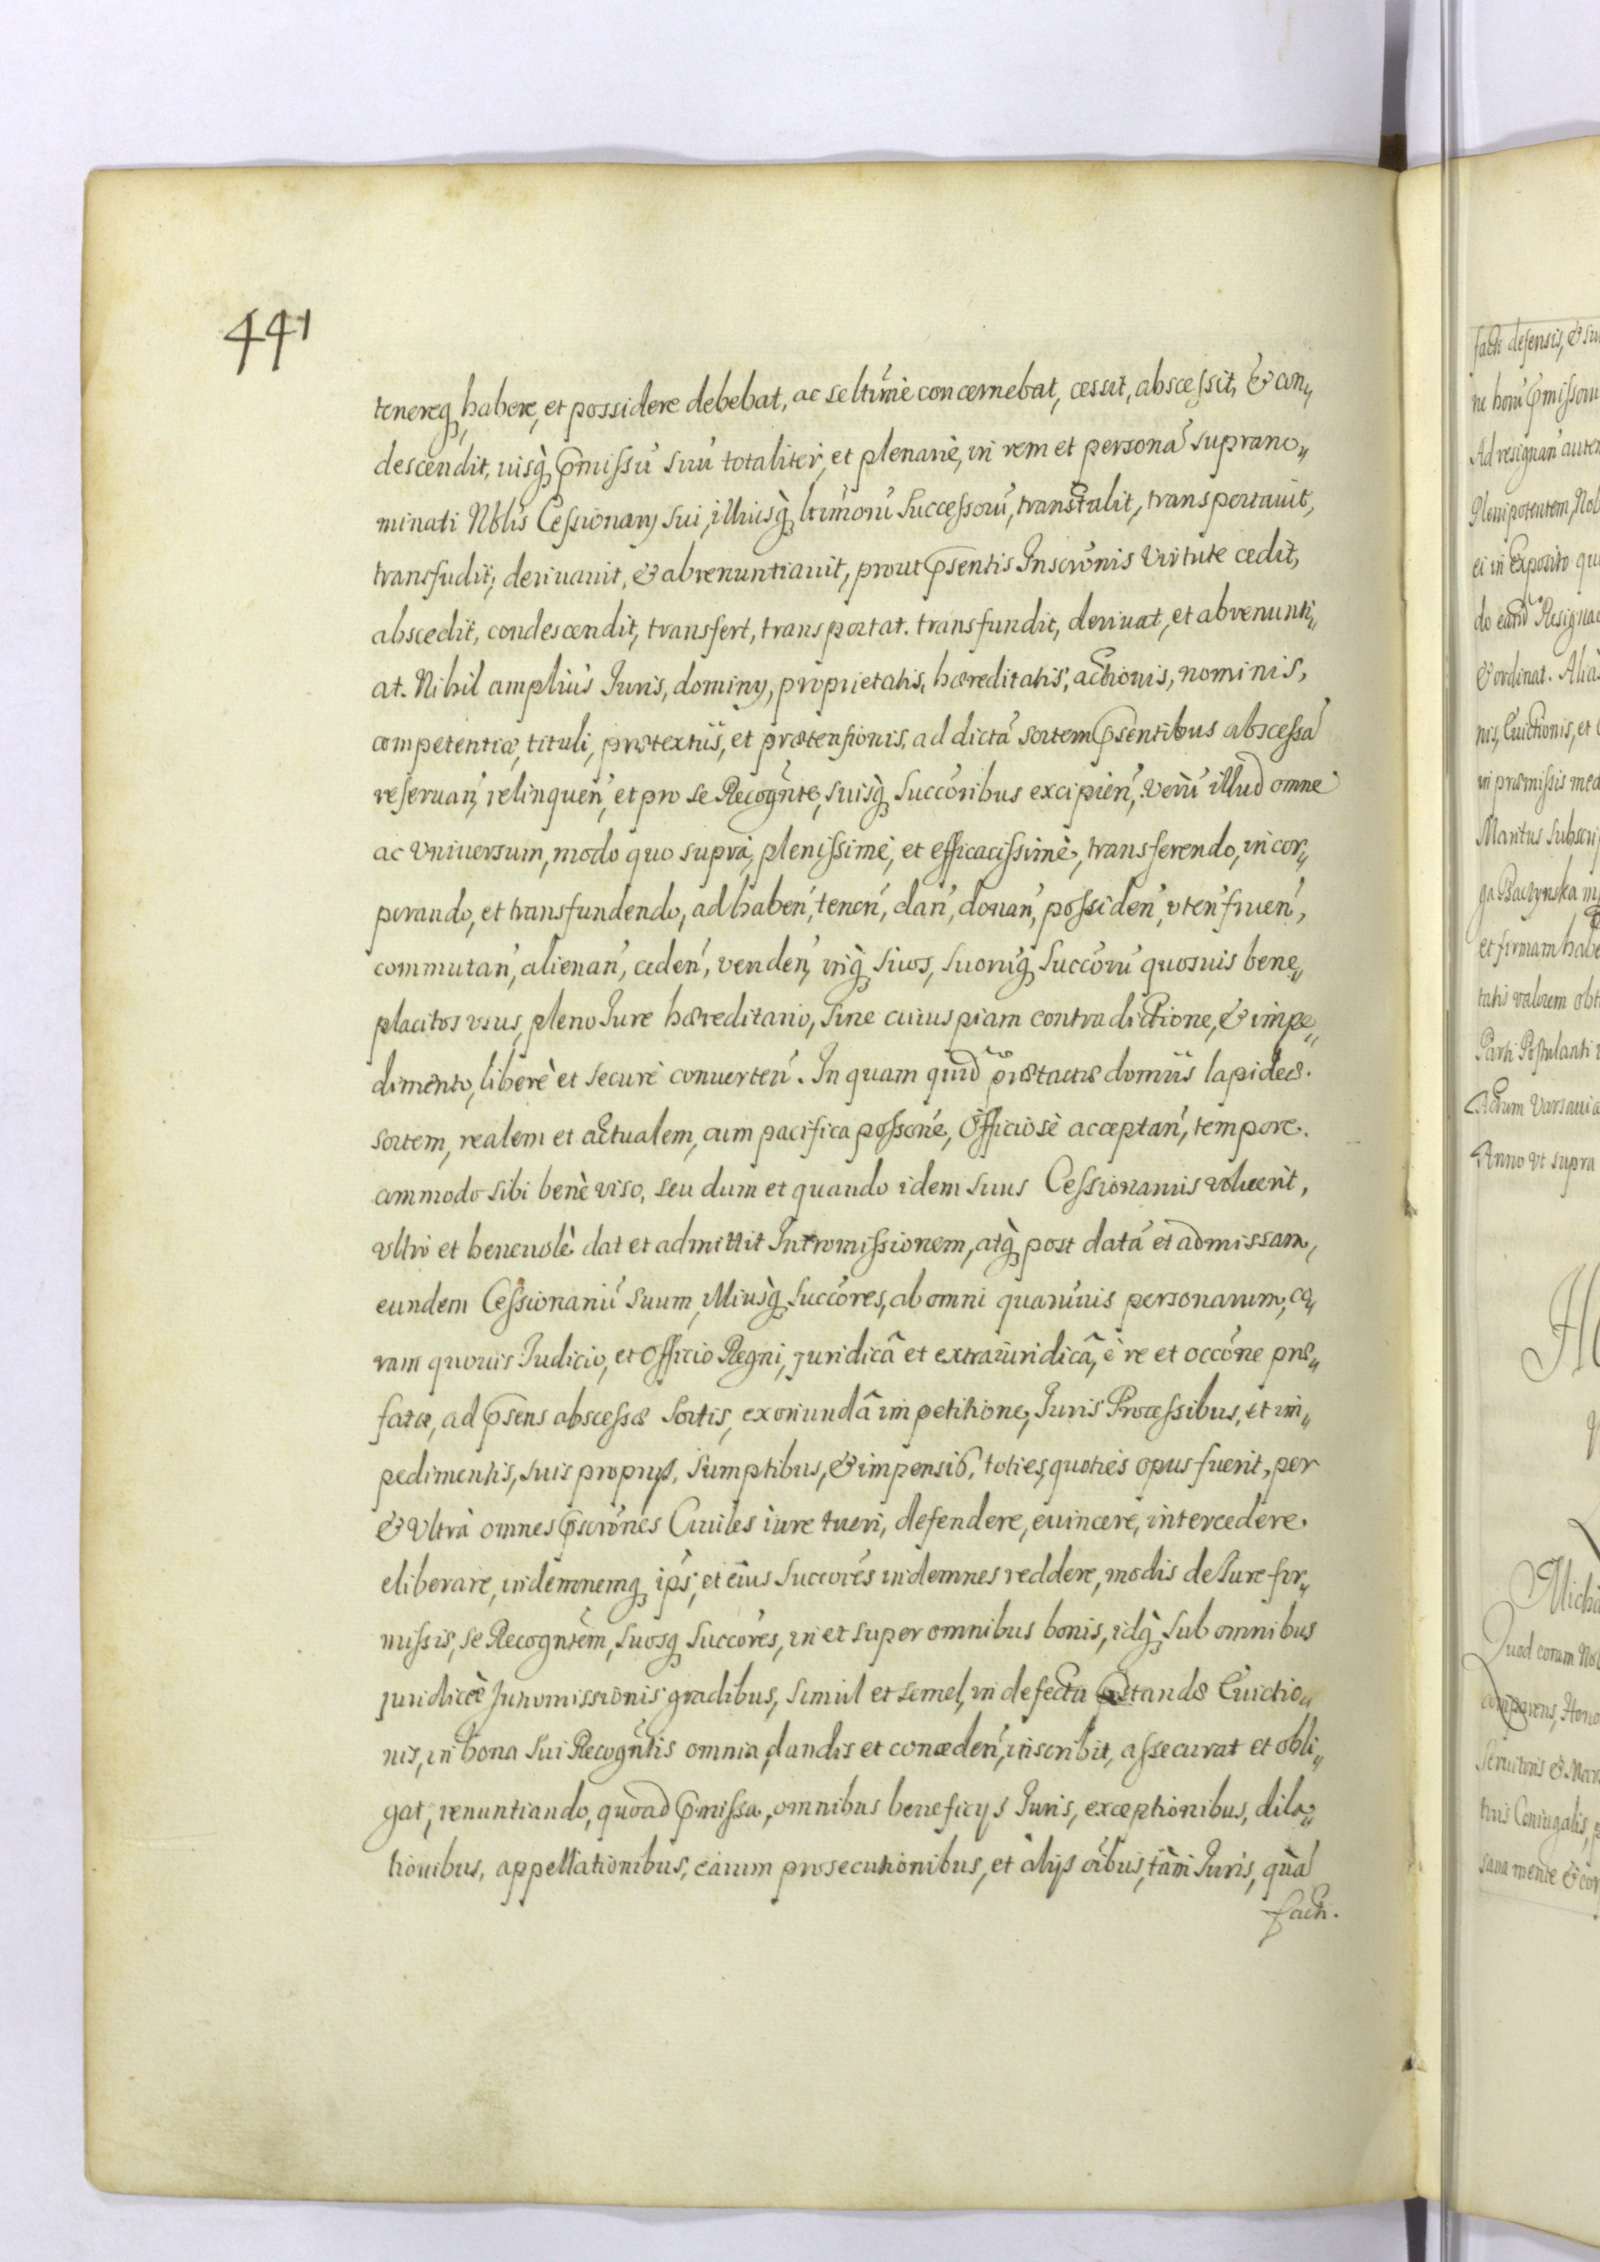 441
tenereq, habere, et possidere debebat, ac se ltimè concernebat, cessit, abscessit, & con„
descendit, iusq, pmissū suū totaliter, et plenariè, in rem et personā suprano„
minati Nblis Cessionarij sui, illiusq, ltimorū Successorū, transtulit, transportauit,
transfudit, deriuauit, & abrenuntiauit, prout psentis Inscronis Virtute cedit,
abscedit, condescendit, transfert, transportat. transfundit, deriuat, et abrenunti„
at. Nihil ampliùs Iuris, dominij, proprietatis, hæreditatis, actionis, nominis,
competentiæ, tituli, prætextûs, et prætensionis, ad dictā sortem psentibus abscessā
reseruań, relinqueń, et pro se Recognte, suisq, succoribus excipień, verū illud omne
ac vniuersum, modo quo supra, plenissimè, et efficacissimè, transferendo, incor„
porando, et transfundendo, ad habeń, teneń, dań, donań, possideń, vteń frueń,
commutań, alienań, cedeń, vendeń, inq, suos, suorūq, succorū quosuis bene„
placitos vsus, pleno Iure hæreditario, sine cuiuspiam contradictione, & impe„
dimento, liberè et securè conuerteń. In quam quid prætactæ domûs lapideæ
sortem, realem et actualem, cum pacifica possone, Officiosè acceptań, tempore
ammodo sibi benè viso, seu dum et quando idem suus Cessionarius voluerit,
vltrò et beneuolè dat et admittit Intromissionem, atq, post datā et admissam,
eundem Cessionariū suum, illiusq, succores, ab omni quarūuis personarum, co„
ram quouis Iudicio, et Officio Regni, juridicâ et extraiuridicâ, è re et occone præ„
fatæ, ad psens abscessæ sortis, exoriundâ impetitione, Iuris Processibus, et im„
pedimentis, suis proprijs, sumptibus, & impensis, toties, quoties opus fuerit, per
& Vltrà omnes pscrones Ciuiles iure tueri, defendere, euincere, intercedere
eliberare, indemnemq, ips, et eius succores indemnes reddere, modis de Iure fir„
missis, se Recogntem, suosq, succores, in et super omnibus bonis, idq, sub omnibus
juridicæ Intromissionis gradibus, simul et semel, in defectu pstandæ Euictio„
nis, in bona sui Recogntis omnia, dandis et concedeń, inscribit, assecurat et obli„
gat, renuntiando, quoad pmissa, omnibus beneficijs Iuris, exceptionibus, dila„
tionibus, appellationibus, earum prosecutionibus, et alijs oibus, tàm Iuris, quà
facti.